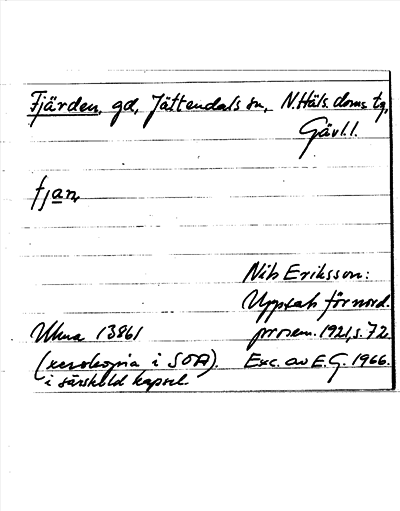 Fjärden, gd, Jättendals sn, N.Häls. doms. tg,
Gävl.l.
fjan,
Nils Eriksson:
Uppsats för nord.
prosem. 1921, s. 72
Ukna 13861
(xerokopia i SOA).
i särskild kapsel.
Exc. av E.G. 1966.